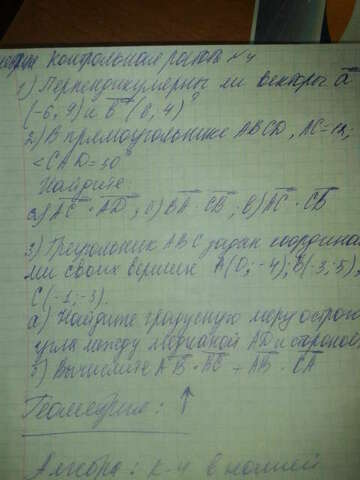 Контрольная работа №4
1) Перпендикулярны ли векторы a
(-6, 9) и b (6, 4)?
2) В прямоугольнике ABCD, AC=12,
<CAD=30°
Найдите:
а) AC · AD, б) BA · CB, в) AC · CB
3) Треугольник ABC задан координата
ми своих вершин A(0,-4); B(-3;-5),
C(-1;-3).
а) Найдите градусную меру острого
угла между медианой AD и стороной
б) Вычислите AB · AC + AB · CA
Геометрия: ↑
Алгебра: К-4 в